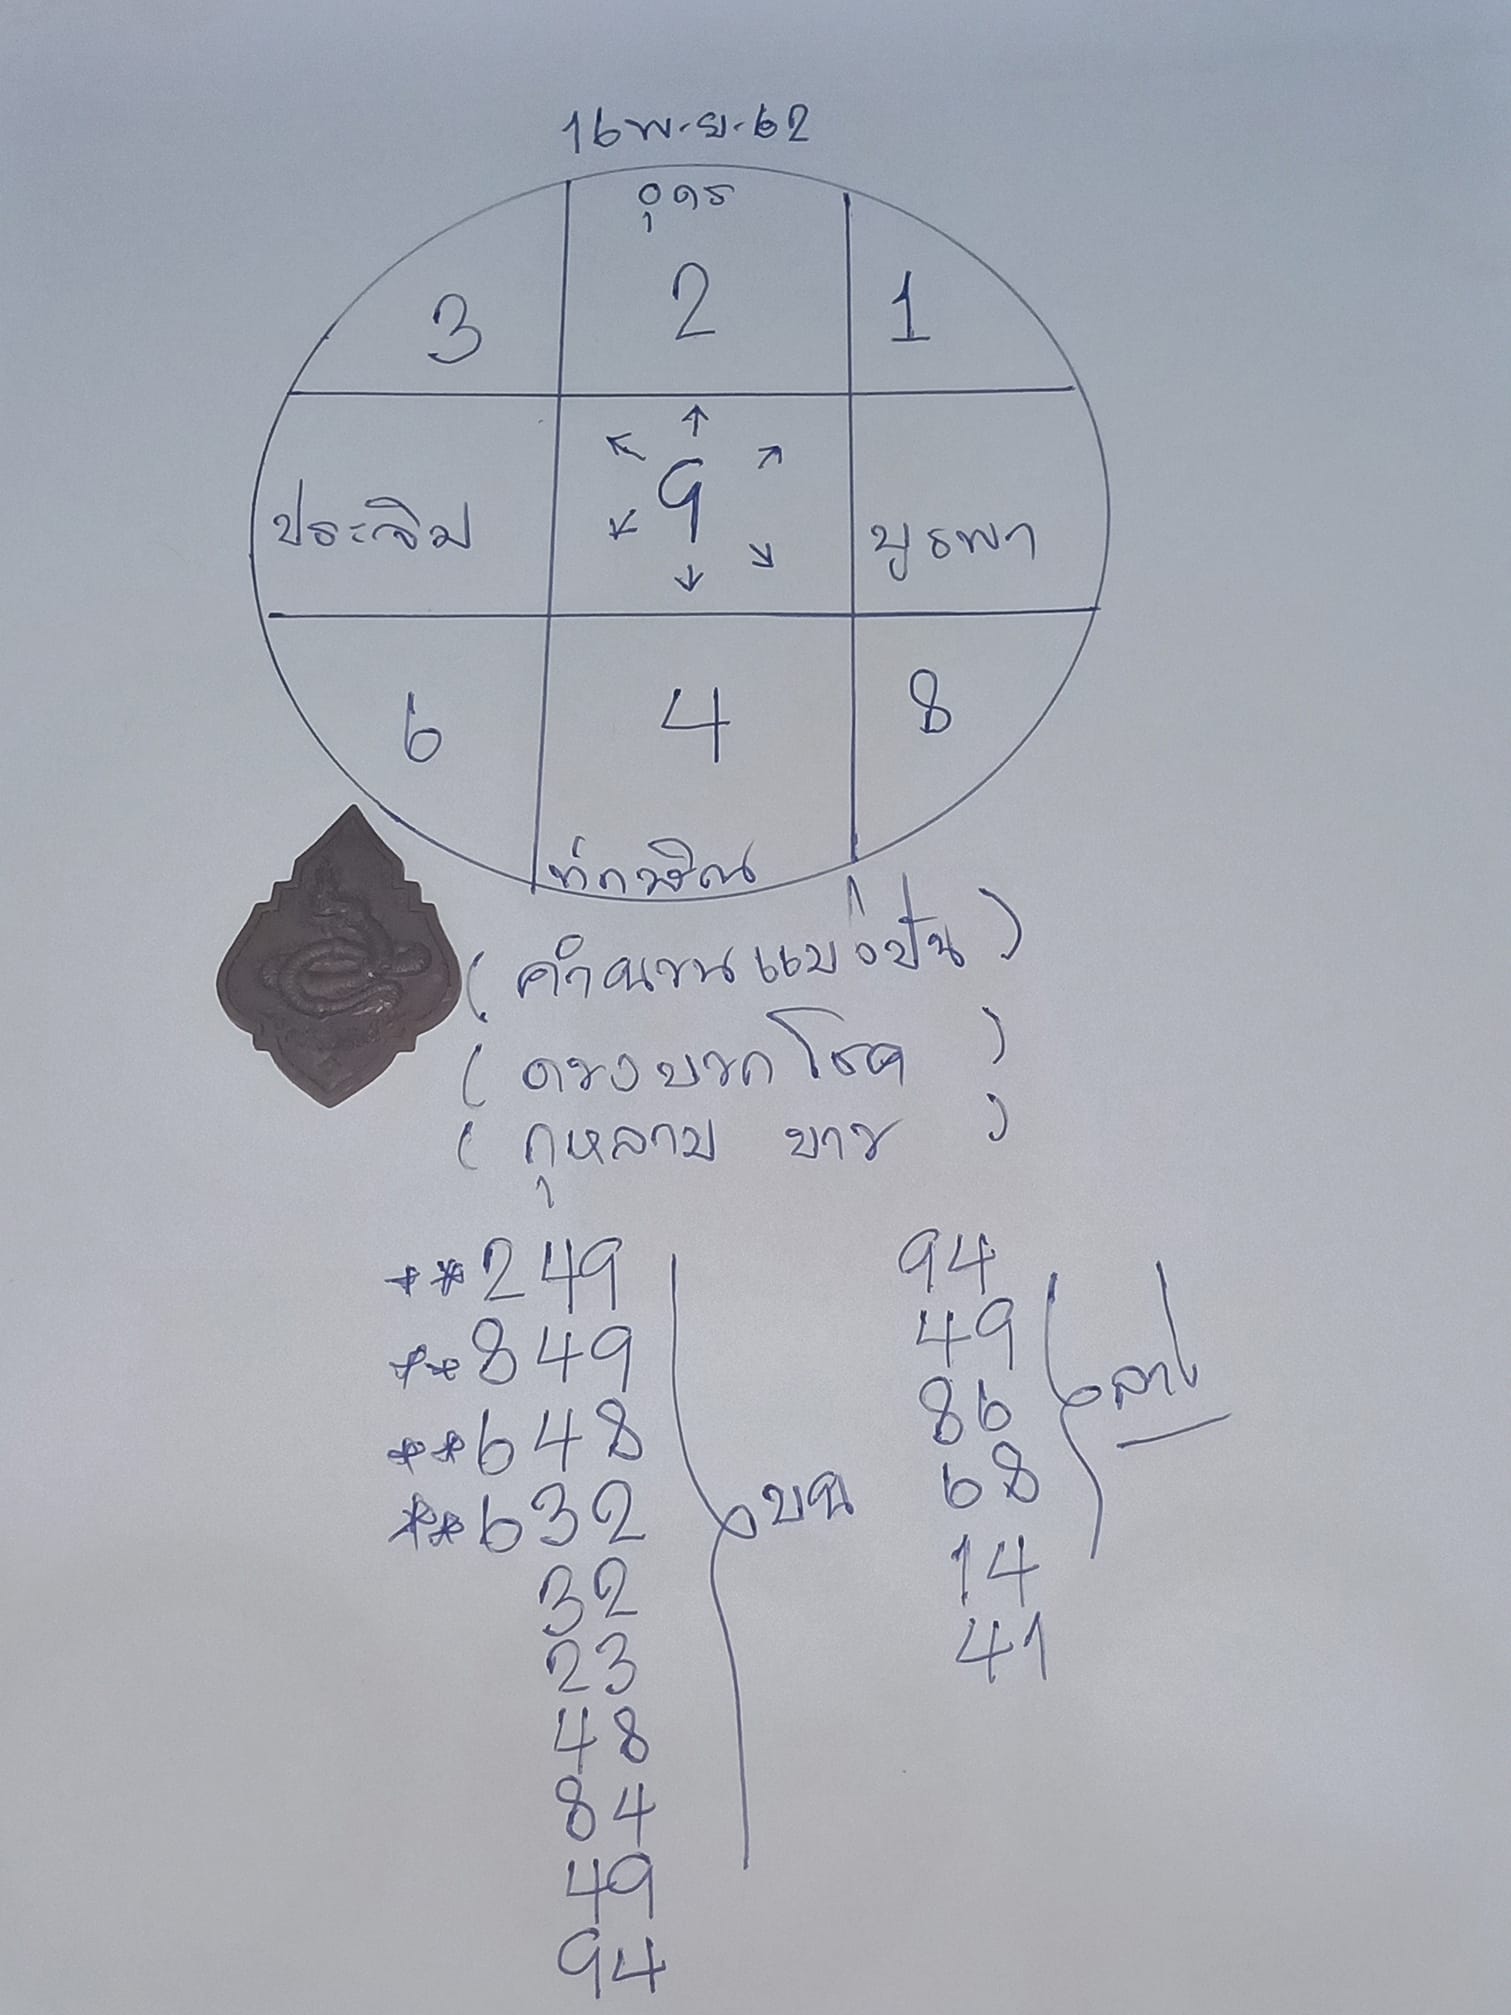 16 พ.ย. 62
อุดร
3 2 1
ประจิม 9 บูรพา
6 4 8
ทักษิณ
(คำนวนแบ่งปัน)
(ดวงบวกโชค)
(กุหลาบ ขาว)
**249 94
**849 49
**648 86
**632 68
32 14
23 41
48
84
49
94
บน
ล่าง